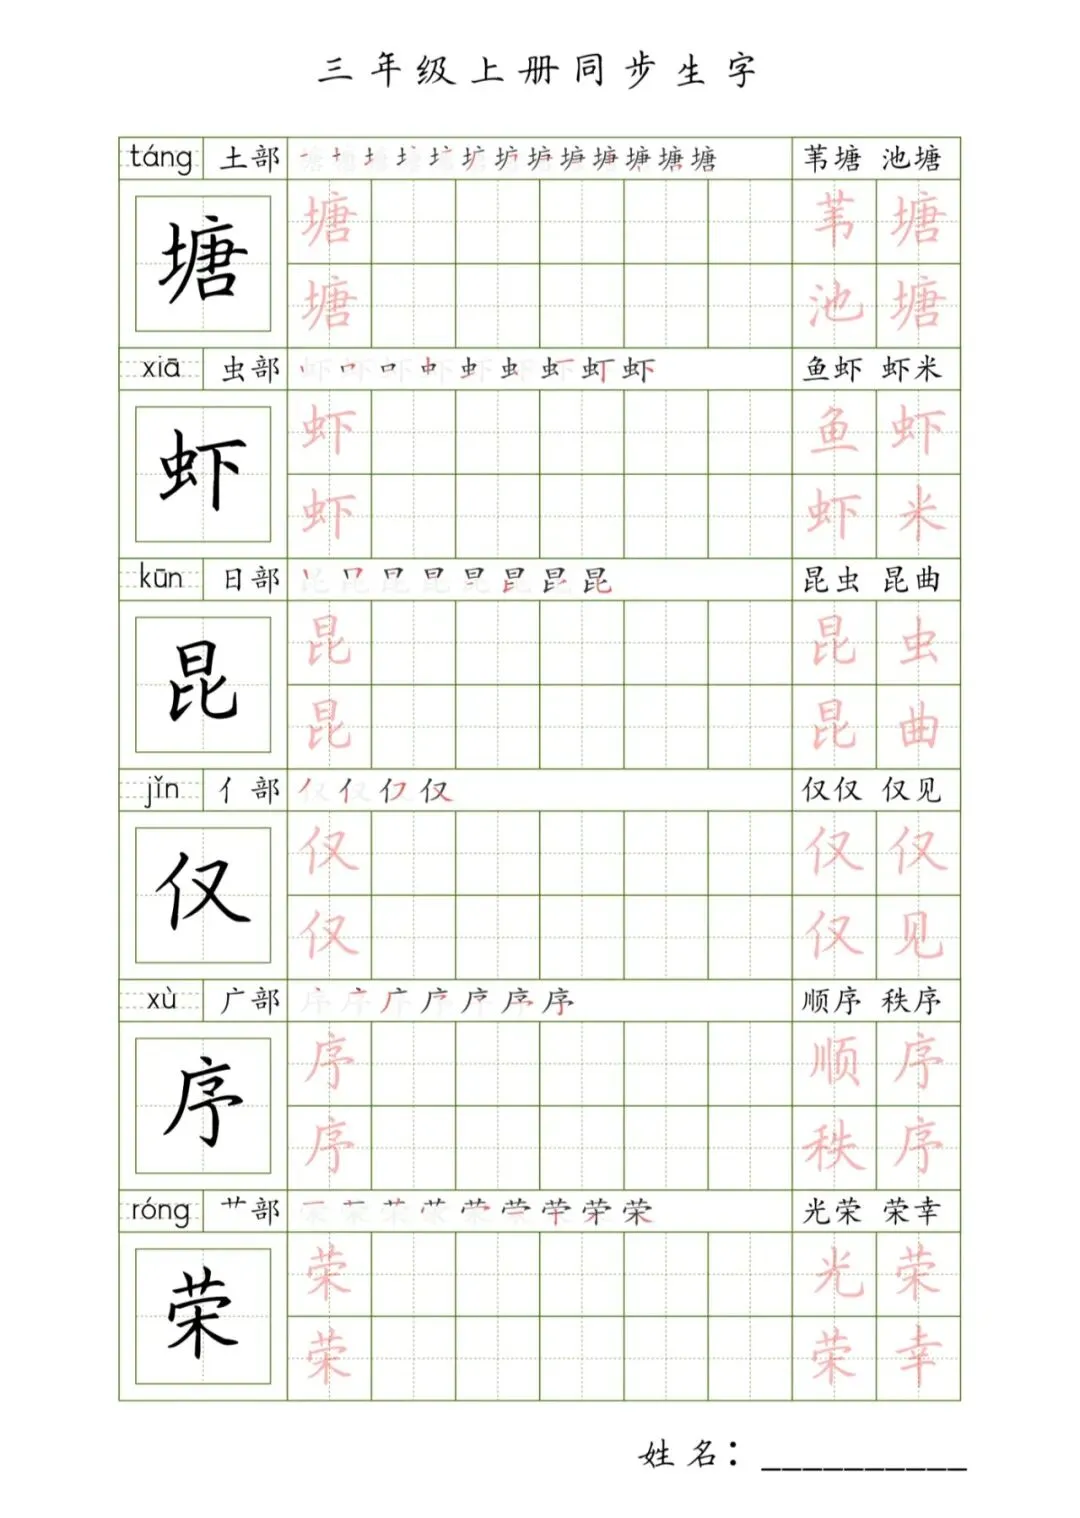 三年级上册同步生字
táng 土部 塘 苇塘 池塘
塘 塘 苇塘
塘 池塘
xiā 虫部 虾 鱼虾 虾米
虾 虾 鱼虾
虾 虾米
kūn 日部 昆 昆虫 昆曲
昆 昆 昆虫
昆 昆曲
jǐn 亻部 仅 仅仅 仅见
仅 仅 仅仅
仅 仅见
xù 广部 序 顺序 秩序
序 序 顺序
序 秩序
róng 艹部 荣 光荣 荣幸
荣 荣 光荣
荣 荣幸
姓名：__________